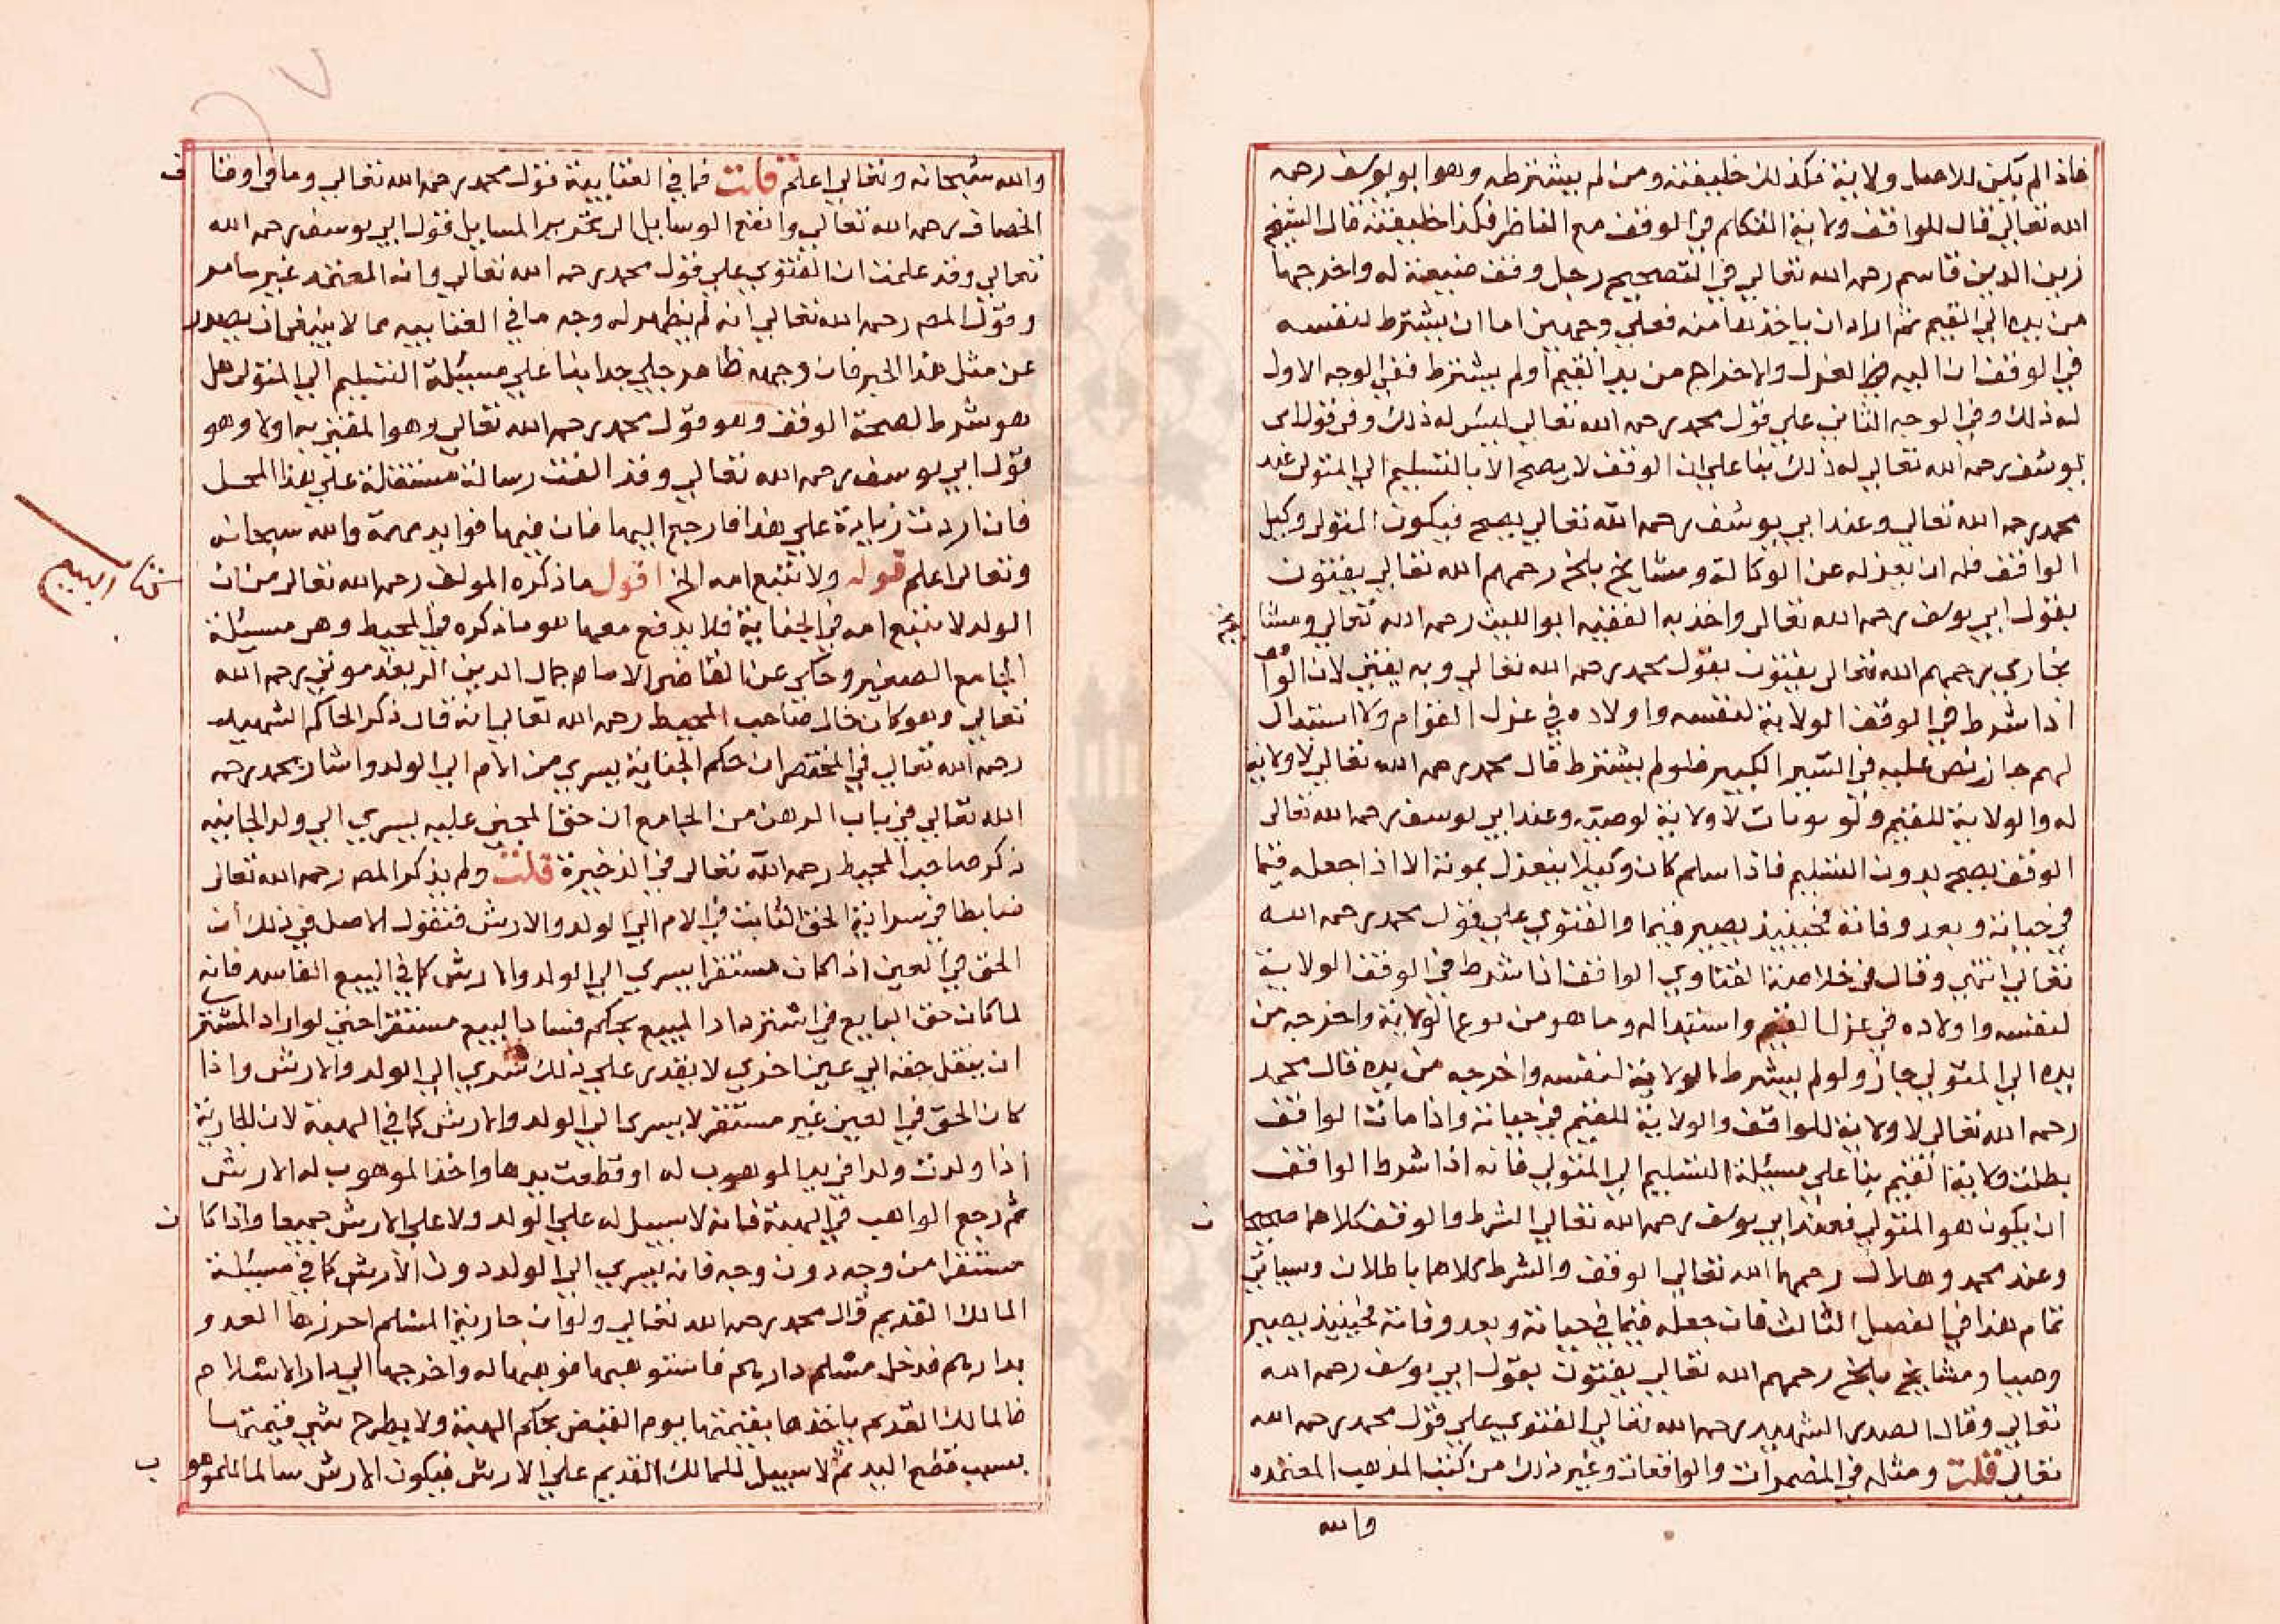 فاذا لم تكن للاصل ولاية فكذلك خليفته ومن لم يشترطه وهو ابو يوسف رحمه
الله تعالى قال للواقف ولاية التكلم في الوقف مع الناظر فكذا خليفته قال الشيخ
زين الدين قاسم رحمه الله تعالى في التصحيح رجل وقف ضيعة له واخرجها
من يده الى القيم ثم اراد ان ياخذها منه فعلى وجهين اما ان يشترط لنفسه
في الوقف ان اليه العزل والاخراج من يد القيم اولم يشترط ففي الوجه الاول
له ذلك وفي الوجه الثاني على قول محمد رحمه الله تعالى ليس له ذلك وفي قول ابي
يوسف رحمه الله تعالى له ذلك بنا على ان الوقف لا يصح الا بالتسليم الى المتولي عند
محمد رحمه الله تعالى وعند ابي يوسف رحمه الله تعالى يصح فيكون المتولي وكيل
الواقف فله ان يعزله عن الوكالة ومشايخ بلخ رحمهم الله تعالى يفتون
بقول ابي يوسف رحمه الله تعالى واخذ به الفقيه ابو الليث رحمه الله تعالى ومشا
بخارى رحمهم الله تعالى يفتون بقول محمد رحمه الله تعالى وبه يفتى لان
اذا شرط في الوقف الولاية لنفسه واولاده في عزل القوام والاستبدال
لهم جاز نص عليه في السير الكبير فلو لم يشترط قال محمد رحمه الله تعالى لا ولاية
له والولاية للقيم ولو مات لا ولاية لوصيه وعند ابي يوسف رحمه الله تعالى
الوقف يصح بدون التسليم فاذا سلم كان وكيلا ينعزل بموته الا اذا جعله قيما
في حياته وبعد وفاته فحينيذ يصير قيما والفتوي على قول محمد رحمه الله
تعالى انتهى وقال في خلاصة الفتاوي الواقف اذا شرط في الوقف الولاية
لنفسه واولاده في عزل القيم واستبداله وما هو من نوع الولاية واخرجه من
يده الى المتولي جاز ولو لم يشرط الولاية لنفسه واخرجه من يده قال محمد
رحمه الله تعالى لا ولاية للواقف والولاية للقيم في حياته واذا مات الواقف
بطلت ولاية القيم بنا على مسيلة التسليم الى المتولي فانه اذا شرط الواقف
ان يكون هو المتولي فعند ابي يوسف رحمه الله تعالى الشرط والوقف كلاهما صحيحا
وعند محمد وهلال رحمهما الله تعالى الوقف والشرط كلاهما باطلان وسياتي
تمام هذا في الفصل الثالث فان جعله قيما في حياته وبعد وفاته فحينيذ يصير
وصيا ومشايخ بلخ رحمهم الله تعالى يفتون بقول ابي يوسف رحمه الله
تعالى وقال الصدر الشهيد رحمه الله تعالى الفتوي على قول محمد رحمه الله
تعالى قلت ومثله في المضمرات والواقعات وغير ذلك من كتب المذهب المعتمده
والله
والله سبحانه وتعالى اعلم قلت فما في العتابية قول محمد رحمه الله تعالى وما في اوقا
الخصاف رحمه الله تعالى وانفع الوسايل الى تحرير المسايل قول ابي يوسف رحمه الله
تعالى وقد علمت ان الفتوي على قول محمد رحمه الله تعالى وانه المعتمد غير
وقول المص رحمه الله تعالى انه لم يظهر له وجه ما في العتابيه مما لا ينبغي ان يصدر
عن مثل هذا الحبر فان وجهه ظاهر جلي جدا بنا على مسيلة التسليم الى المتولي هل
هو شرط لصحة الوقف وهو قول محمد رحمه الله تعالى وهو المفتى به اولا وهو
قول ابي يوسف رحمه الله تعالى وقد الفت رسالة مستقلة على هذا المحل
فان اردت زيادة على هذا فارجع اليها فان فيها فوايد مهمة والله سبحانه
وتعالى اعلم قوله ولا تتبع امه الخ اقول ما ذكره المولف رحمه الله تعالى من ان
الولد لا يتبع امه في الجناية فلا يدفع معها هو ما ذكره في المحيط وهي مسيلة
الجامع الصغير وحكي عن القاضي الامام جمال الدين رحمه الله
تعالى وهو كان خال صاحب المحيط رحمه الله تعالى انه قال ذكر الحاكم الشهيد
رحمه الله تعالى في المختصر ان حكم الجناية يسري من الام الى الولد واشار محمد رحمه
الله تعالى في باب الرهن من الجامع ان حق المجني عليه يسري الى ولد الجانيه
ذكر صاحب المحيط رحمه الله تعالى في الذخيرة قلت ولم يذكر المص رحمه الله تعالى
ضابطا في سراية الحق الثابت في الام الى الولد والارش فنقول الاصل في ذلك ان
الحق في العين اذا كان مستقرا يسري الى الولد والارش كما في البيع الفاسد فانه
لما كان حق البايع في استرداد المبيع بحكم فساد البيع مستقرا حتى لو اراد المشتر
ان ينقل حقه الى عين اخري لا يقدر على ذلك سري الى الولد والارش واذا
كان الحق في العين غير مستقر لا يسري الى الولد والارش كما في الهبة لان الجارية
اذا ولدت ولدا في يد الموهوب له او قطعت يدها واخذ الموهوب له الارش
ثم رجع الواهب في الهبة فانه لا سبيل له على الولد ولا على الارش جميعا واذا كا
مستقرا من وجه دون وجه فانه يسري الى الولد دون الارش كما في مسيلة
المالك القديم قال محمد رحمه الله تعالى ولو ان جارية المسلم احرزها العدو
بدارهم فدخل مسلم دارهم فاستوهبها فوهبها له واخرجها الى دار الاسلام
فالمالك القديم ياخذها بقيمتها يوم القبض بحكم الهبة ولا يطرح شي قيمتها
بسبب قطع اليد ثم لا سبيل للمالك القديم على الارش فيكون الارش سالما للموهو